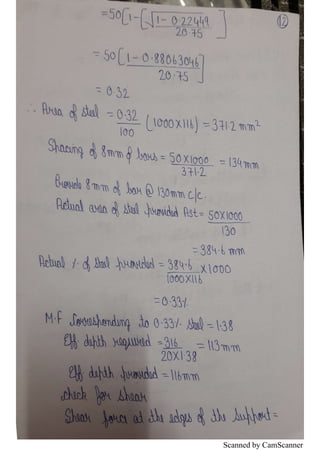 = 50 [1 - [√1 - 0.22449 / 20.75]
(12)
= 50 [1 - 0.88063046 / 20.75]
= 0.32
∴ Area of steel = 0.32/100 (1000X116) = 371.2 mm²
Spacing of 8mm ϕ bars = 50X1000/371.2 = 134mm
Provide 8mm of bar @ 130mm c/c.
Actual area of steel provided Ast = 50X1000/130
= 384.6 mm
Actual % of steel provided = 384.6/1000X116 X1000
= 0.33%
M.F Corresponding to 0.33% steel = 1.38
Eff depth required = 316/20X1.38 = 113mm
Eff depth provided = 116mm
check for shear
Shear force at the edges of the support =
Scanned by CamScanner